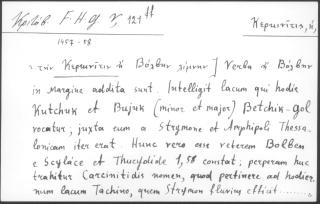 Κριτόβ. F.H.G V, 121 ff
Κερκινῖτις, ἡ,
1457-58
τὴν Κερκινῖτιν ἢ Βόλβην λίμνην] Verba ἢ Βόλβην
in margine addita sunt. Intelligit lacum qui hodie
Kutchuk et Bujuk (minor et major) Betchik-göl
vocatur; juxta eum a Strymone et Amphipoli Thessa-
lonicam iter erat. Hunc vero esse veterem Bolben
e Scylace et Thucydide 1,58 constat; perperam huc
trahitur Carcinitidis nomen, quod pertinere ad hodier-
num lacum Tachino, quem Strymon fluvius efficit